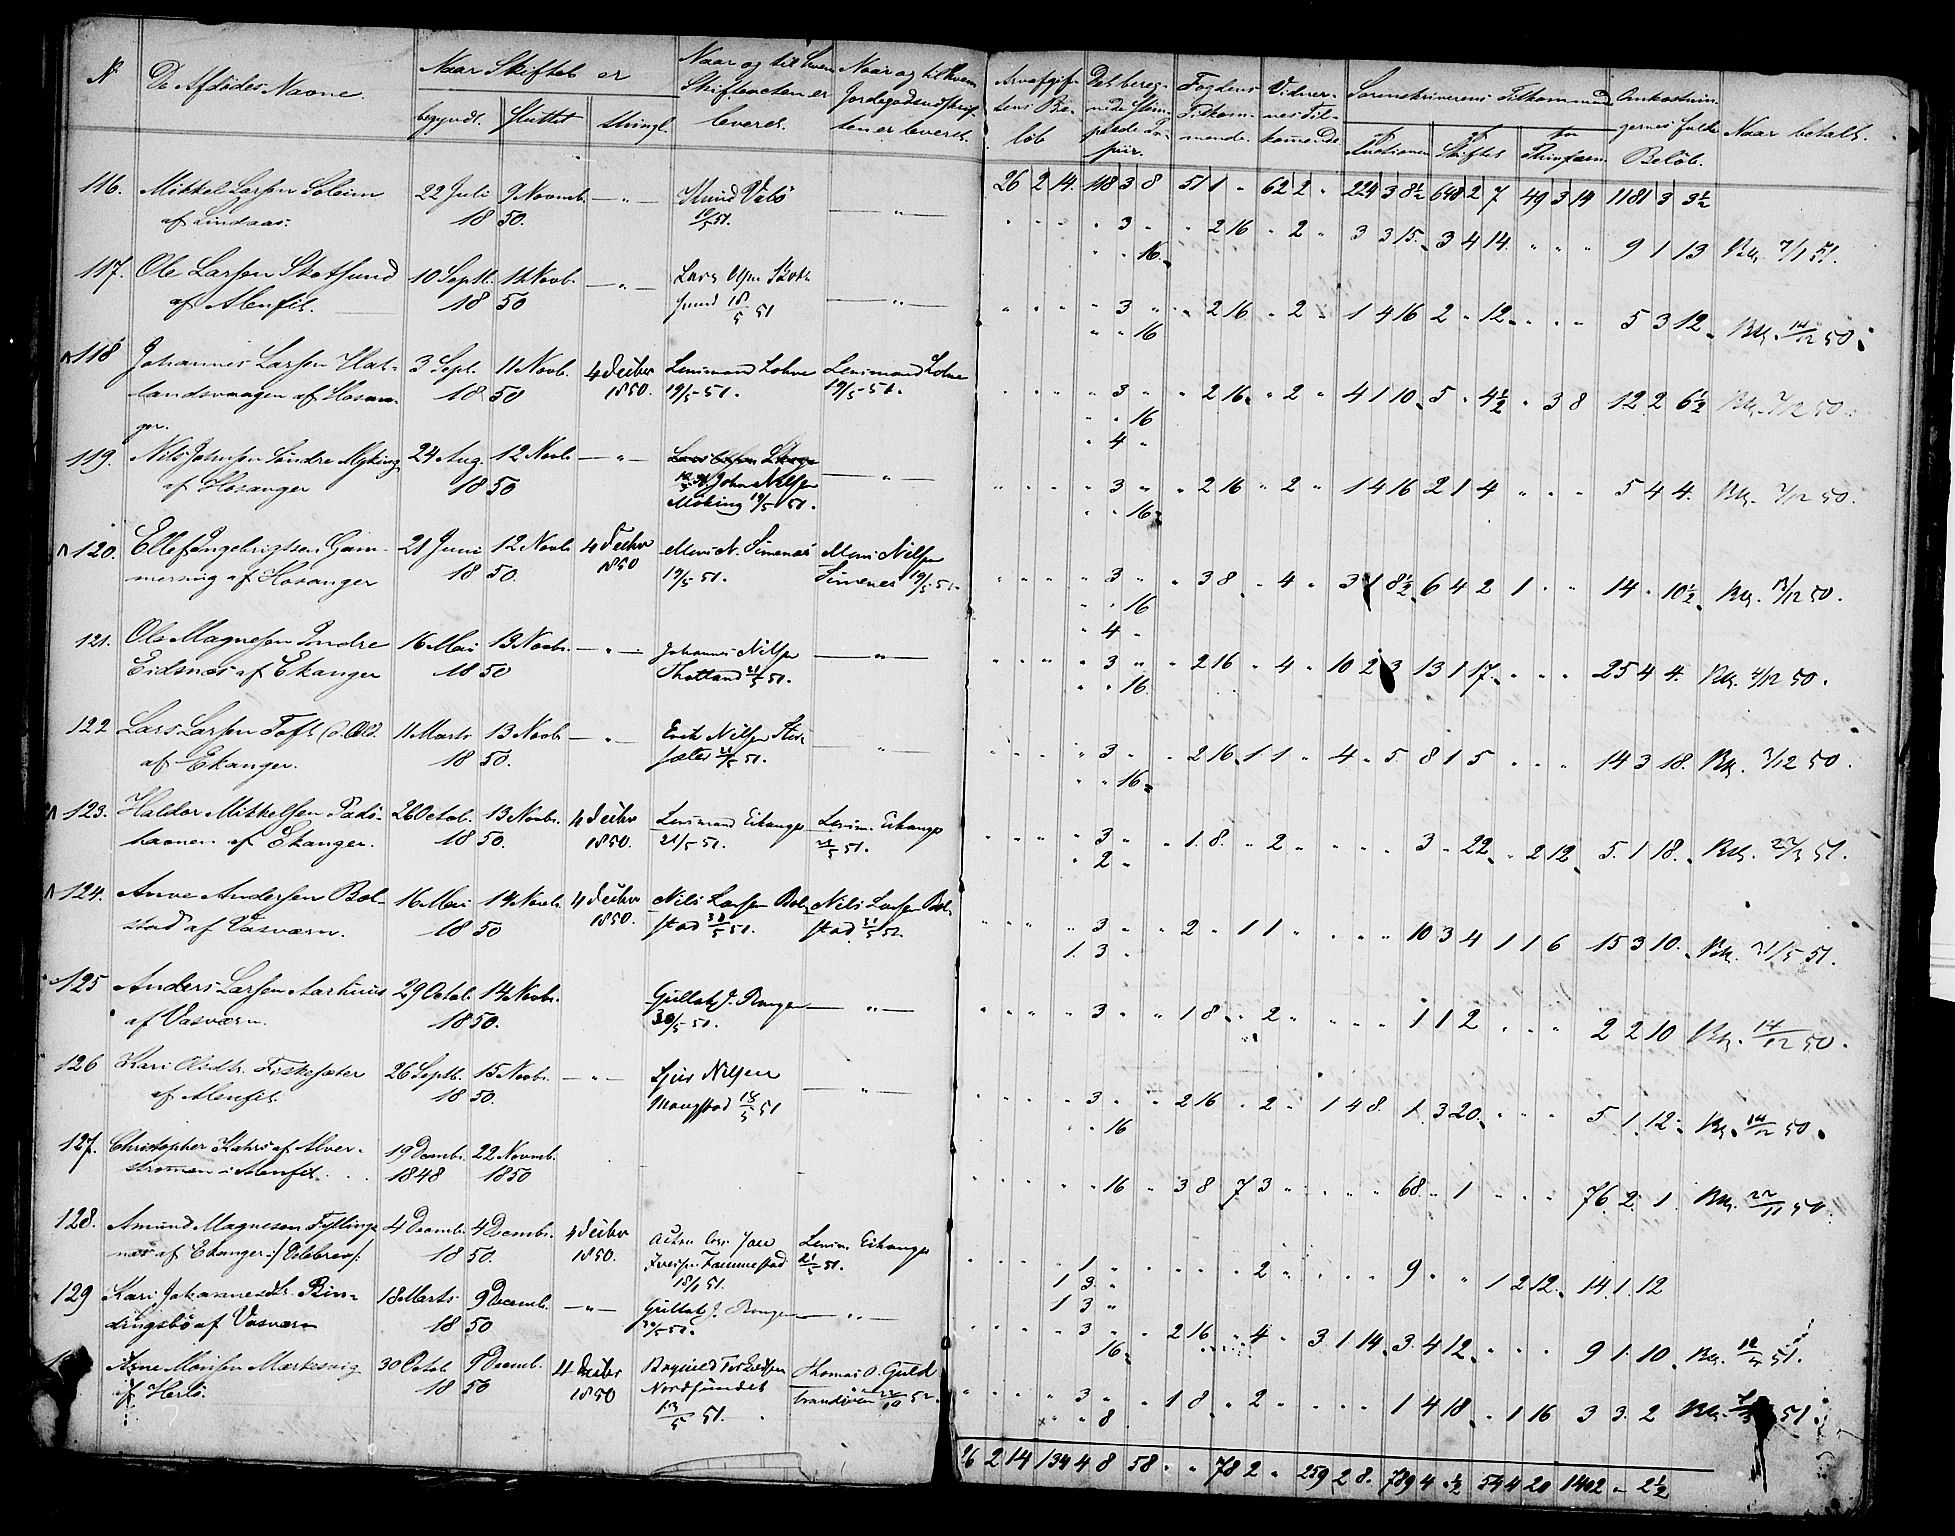 N De Afdödes Navne. Naar Skiftet er Naar og til hvem Naar og til hvem
Skifteacten er
begyndt. Sluttet thingl. leveret. ten er leveret.
116. Mikkel Larsen Soleim 22 Juli 9 Novemb. — " — Knud Vabö
af Lindaas. 18 50. 19/5 51. — " —
117. Ole Larsen Skotsund 10 Septb. 11 Novb. — " — Lars Olsen Skot-
af Alenfit. 18 50 sund 18/5 51 — " —
118 Johannes Larsen Hat- 3 Sept. 11 Novb. 4 Decbr Lensmand Lohne Lensmand Lohne
landsvaagen af Hosan- 18 50 1850. 19/5 51. 19/5 51.
ger.
119. Nils Johnsen Söndre Myking 24 Aug. 12 Novb. — " —
af Hosanger 18 50 John Nilsen — " —
Möking 19/5 51.
120. Ellef Engebrigtsen Gam- 21 Juni 12 Novb. 4 Decbr Mons N. Simenæs Mons Nilsen
mersvig af Hosanger 18 50. 1850 19/5 51. Simenes 19/5 51.
121. Ole Magnesen Indre 16 Mai 13 Novbr. — " — Johannes Nilsen — " —
Eidsnæs af Ekanger 18 50 21/5 51.
122 Lars Larsen Toft 11 Marts 13 Novb. — " — Erik Nilsen
af Ekanger. 18 50. 21/5 51. — " —
123. Haldor Mikkelsen Padö- 26 Octob. 13 Novbr. 4 Decbr Lensmand Eikanger Lensm. Eikanger
havnen af Ekanger. 18 50. 1850. 21/5 51. 21/5 51.
124. Anne Andersen Bol- 16 Mai 14 Novb. 4 Decbr Nils Larsen Bol- Nils Larsen Bol-
stad af Vasværn. 18 50 1850. stad 51. stad
125 Anders Larsen Aarhuus 29 Octob. 14 Novbr. Gullak J. Ronger — " —
af Vasværn. 18 50. 30/5 51.
126 Kari Olsdtr. Fiskesæter 26 Septb. 15 Novbr. — " — Sjur Nilsen
af Alenfit. 18 50. Mongstad 18/5 51 — " —
127. Christopher Kahrs af Alver- 19 Decemb. 22 Novemb.
strömmen i Alenfit. 1848 1850
128. Amund Magnesen Fyllings- 4 Decemb. 4 Decembr. 4 Decbr Lensm. Eikanger
næs af Ekanger 18 50. 1850. 21/5 51.
15/1 51.
129 Kari Johannesdtr. Rin- 18 Marts 9 Decemb. — " — Gullak J. Ronger — " —
dingsbö af Vasværn 18 50 30/5 51.
Arne Monsen Marksvig 30 Octob. 9 Decemb. 4 Decbr Brynild Torkelsen Thomas O. Guld
af Herlö. 18 50 1850 Nordsundet brandsöen
13/5 51.
Arveafgif- Det bereg- Fogdens Vidner- Sorenskriverens Tilkommende Omkostnin-
tens Be- nede Stem- Tilkom- nes Til- gernes fulde Naar betalt.
löb plede Pa- mende. kommende Auctionen Skiftet Belöb.
piir.
26 2 14. 118 3 8 51 1 " 62 2 " 224 3 8½ 648 2 7 49 3 14 1181 3 3½
" " " " 3 " " 2 16 " 2 " 3 3 15. 3 4 14. " " " 9 1 13 Btlg. 7/1 51.
" " 16.
" " " " 3 " " 2 16 " 2 " 1 4 16 2 " 12. " " " 5 3 12. Btlg. 14/12 50.
" " 16
" " " " 3 " " 2 16. " 2 " 4 1 10. 5 " 4½ " 3 8 12 2 6½ Btlg. 7/12 50.
" " 16
" 4 "
" " " " 3 " " 2 16 " 2 " 1 4 16 2 1 4 " " " 5 4 4. Btlg. 7/12 50.
" " 16.
" " " " 3 " " 3 8. " 4 " 3 1 8½. 6 4 2 1 " " 14 " 10½. Btlg. 50.
" " 16
" 4 "
" " " " 3 " " 2 16 " 4 " 10 2 3 13 1 17. " " " 25 4 4. Btlg. 4/12 50.
" " 16.
" " " " 3 " " 2 16. 1 1 " 4 " 5 8 1 5 " " " 14 3 18. Btlg. 7/12 50.
" " 16.
" " " " 3 " " 1 8. " 2 " " " " 3 " 22. " 2 12. 5. 1 18. Btlg. 51.
" 2 "
" " " " 3 " " 2 " 1 1 " " " " 10 3 4 1 1 6 15 3 10. Btlg. 51.
1. 3 "
" " " " 3 " " 1 8. " 2 " " " " 1 1 2 " " " 2 2 10 Btlg. 14/12 50.
" " " " 3 " " 2 16 " 2 " 1 4 8. 1. 3 20. " " " 5 1. 12. Btlg. 14/12 50.
" " 16
" " " " " 16 " 3 8 7 3 " " " " 68 " 1 " " " 76. 2. 1. Btlg. 22/11 50.
" " " " 1 " " " " " 2 " " " " 9 " " 1 2 12. 14. 1. 12
1 3. "
1 3 "
" " " " 3 " " 2 16 " 4 " 3. 1 14. 3. 4 12. " " " 9 1. 10. Btlg. 51.
16.
" " " " 3 " " 1 8. " 2 " " " " 1 4 18. " 1 16 3 3. 2 Btlg. 51.
" " 8
26 2 14 134 4 8 58 " " 78 2 " 259 2 8. 789 4 ½ 54 4 20 1402 " 2½